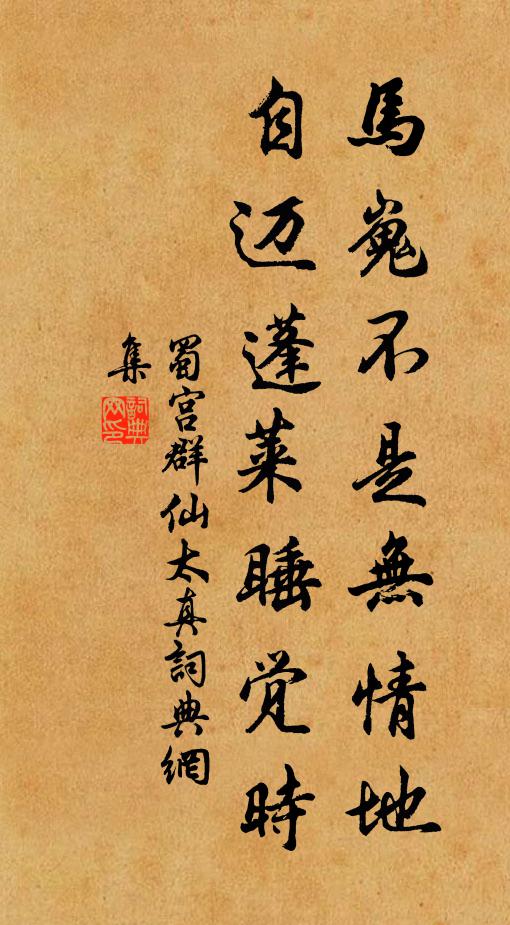 馬嵬不是無情地
自迈蓬莱睡觉時
蜀宫群仙太真詞典網
集
詞典
网印